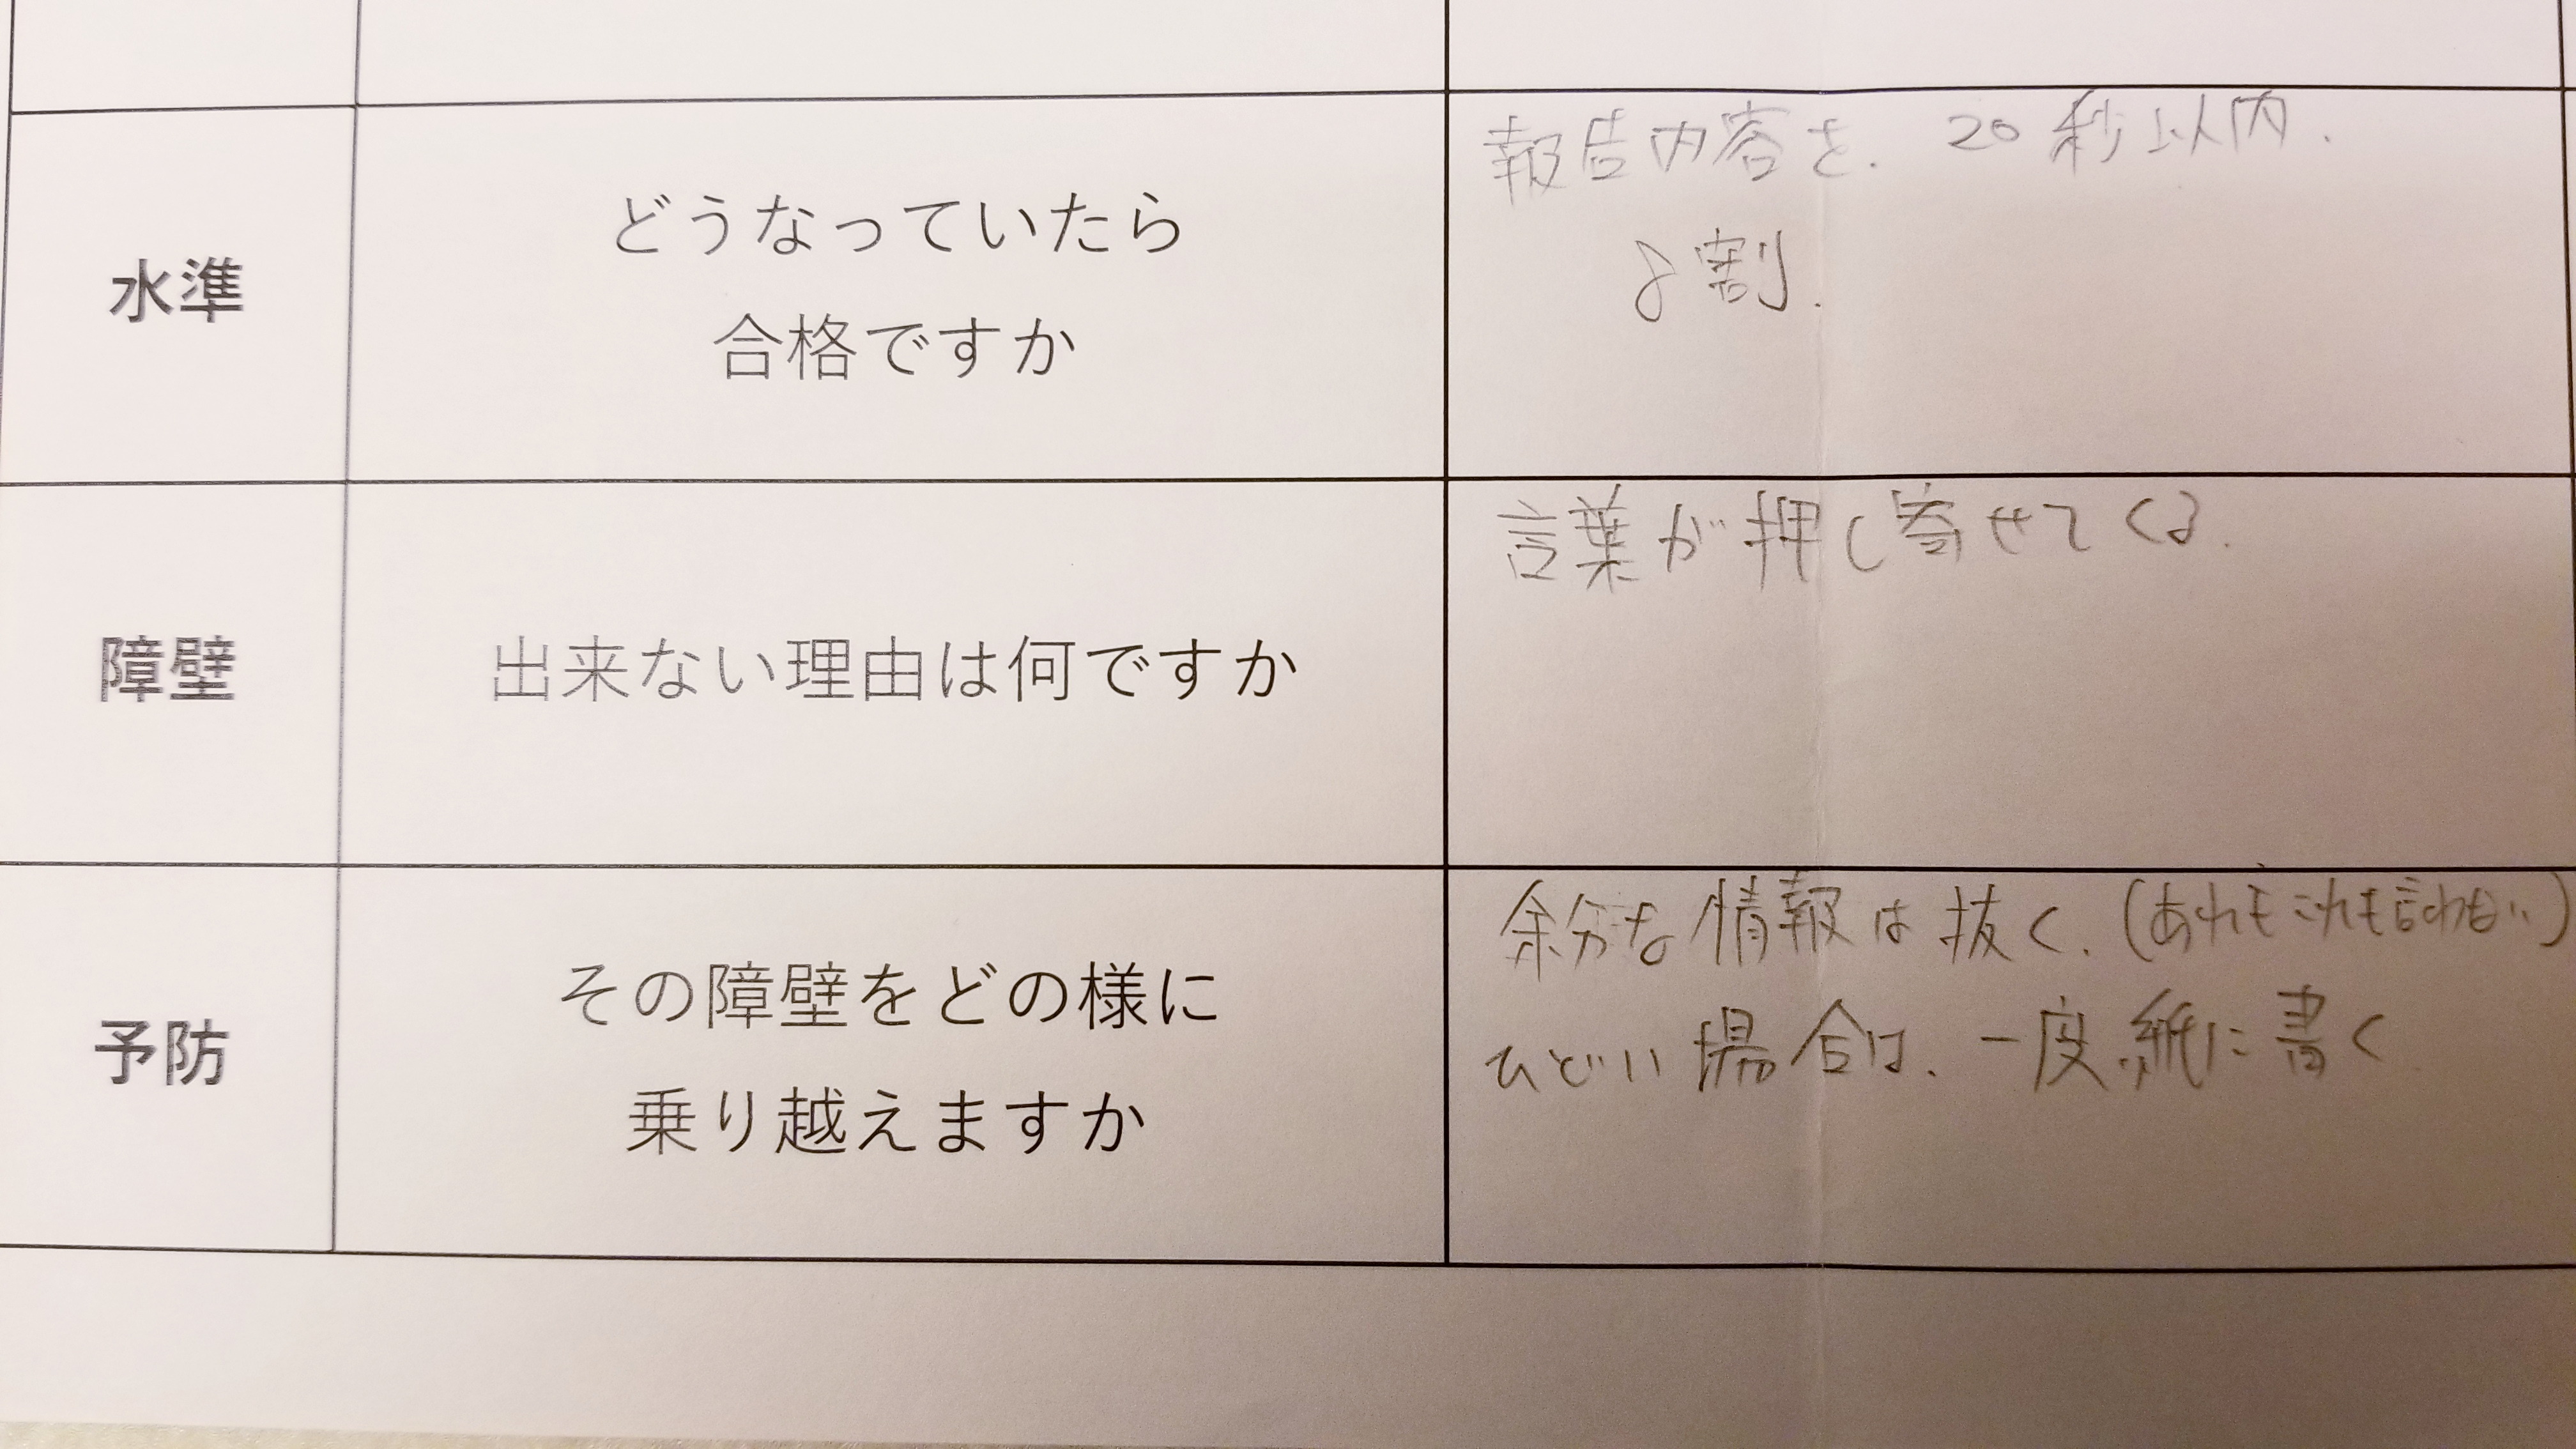 水準
どうなっていたら
合格ですか
報告内容を. 20秒以内.
8割.
障壁
出来ない理由は何ですか
言葉が押し寄せてくる.
予防
その障壁をどの様に
乗り越えますか
余分な情報は抜く. (あれもこれも言わない)
ひどい場合は. 一度紙に書く